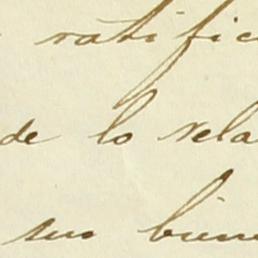 ratific
de lo rela
su bien